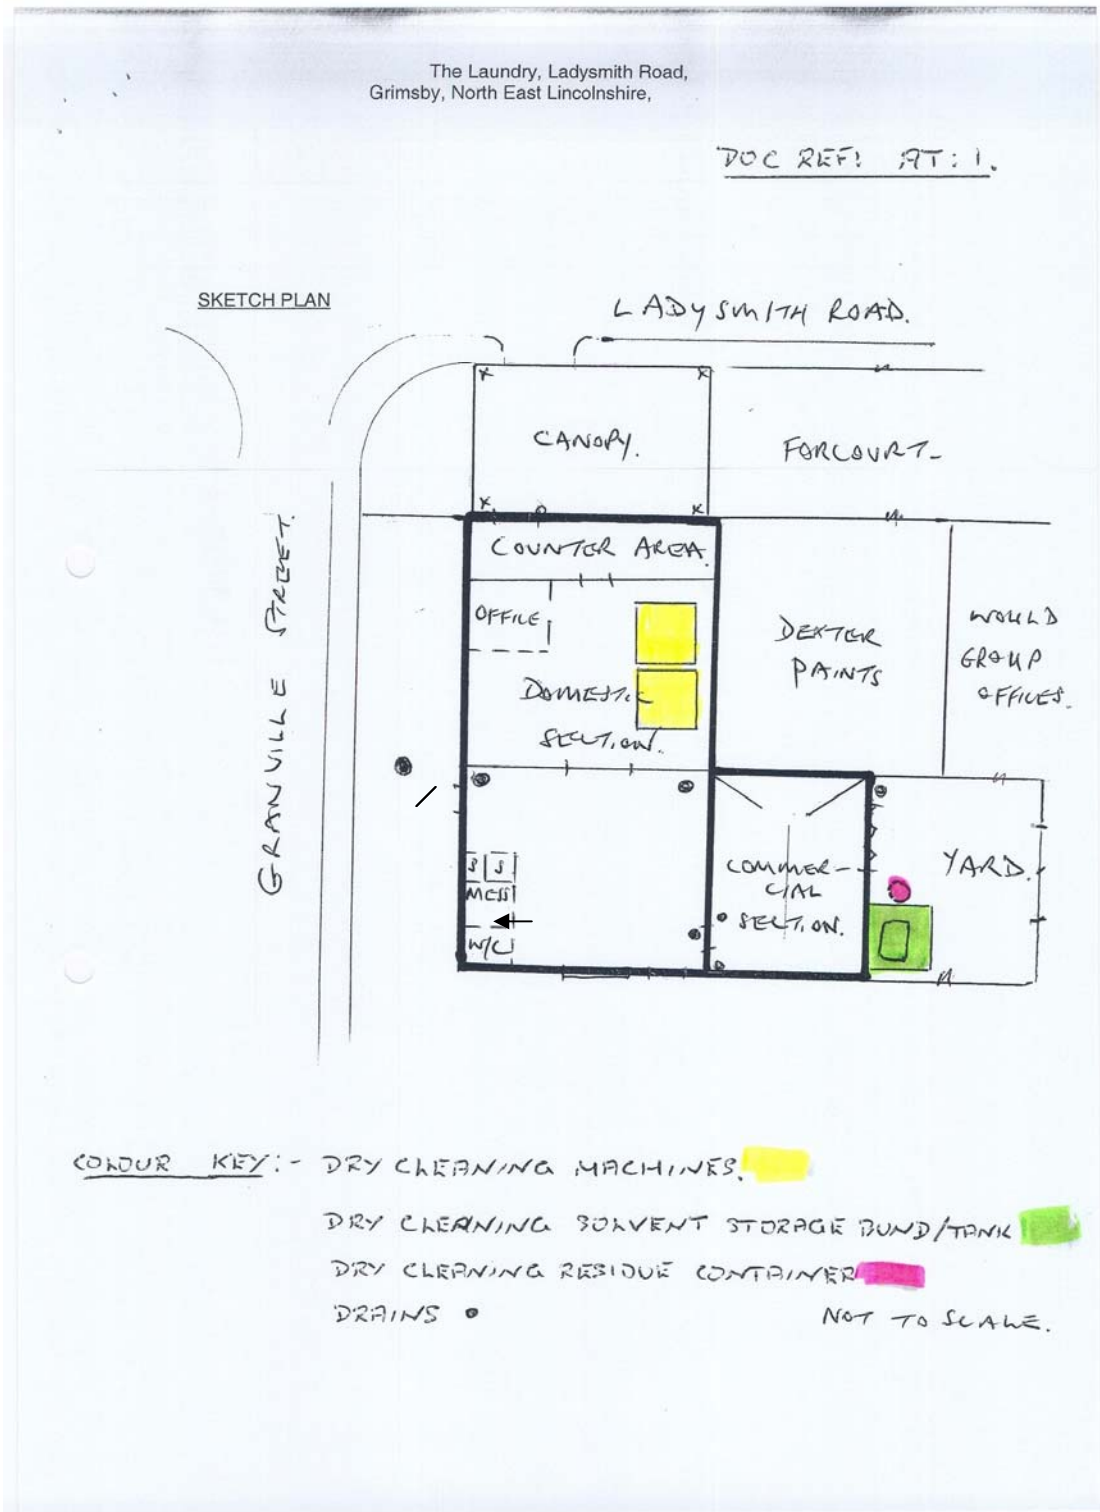 The Laundry, Ladysmith Road,
Grimsby, North East Lincolnshire,
DOC REF: AT: 1.
SKETCH PLAN
LADYSMITH ROAD.
CANOPY.
FORCOURT
GRANVILLE STREET.
COUNTER AREA.
OFFICE
DOMESTIC
SECTION.
DEXTER
PAINTS
WOULD
GROUP
OFFICES.
S S
MESS
W/C
COMMER-
CIAL
SECTION.
YARD.
COLOUR KEY:- DRY CLEANING MACHINES.
DRY CLEANING SOLVENT STORAGE BUND/TANK
DRY CLEANING RESIDUE CONTAINER
DRAINS
NOT TO SCALE.